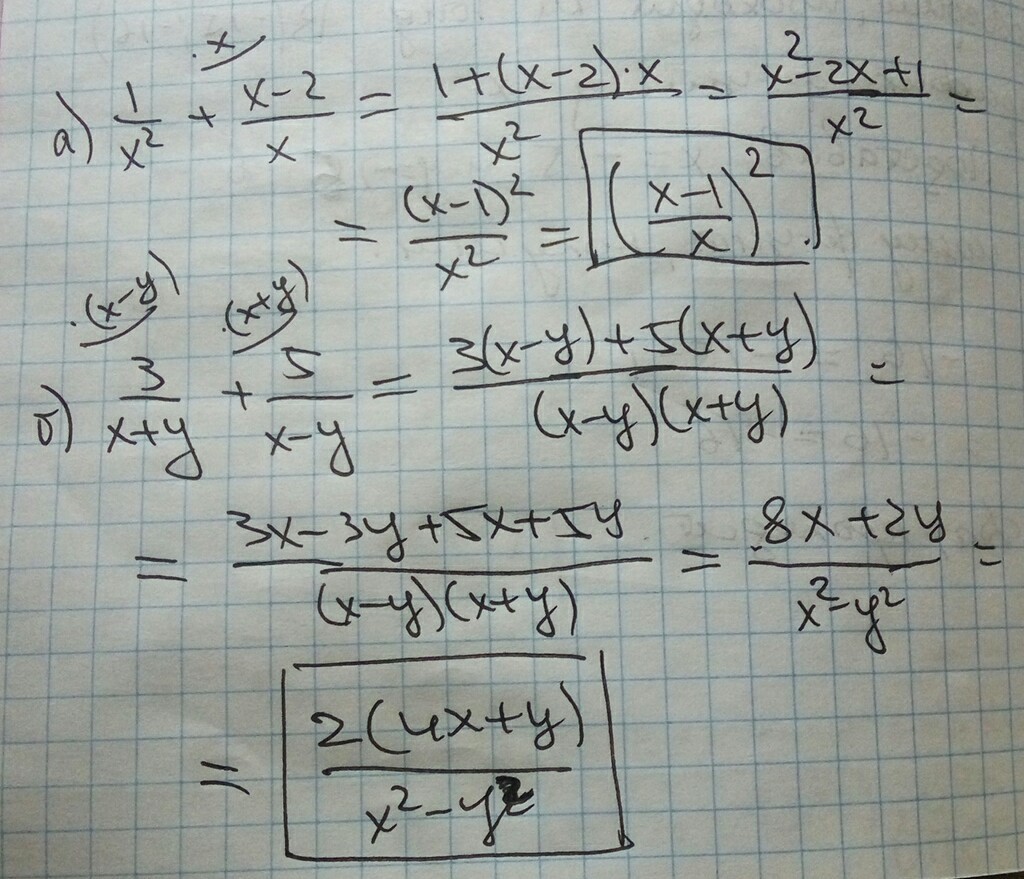 ·x
а) 1/x² + (x-2)/x = (1+(x-2)·x)/x² = (x²-2x+1)/x² =
= (x-1)²/x² = ((x-1)/x)²
·(x-y) ·(x+y)
б) 3/(x+y) + 5/(x-y) = (3(x-y)+5(x+y))/((x-y)(x+y)) =
= (3x-3y+5x+5y)/((x-y)(x+y)) = (8x+2y)/(x²-y²) =
= 2(4x+y)/(x²-y²)